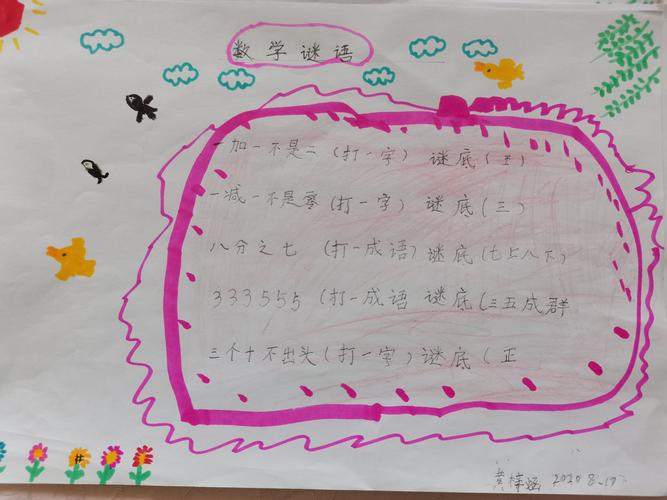 数学谜语
一加一不是二（打一字）谜底（王）
一减一不是零（打一字）谜底（三）
八分之七（打一成语）谜底（七上八下）
333555（打一成语 谜底（三五成群
三个十不出头（打一字）谜底（正
黄梓涵 2020 8.17